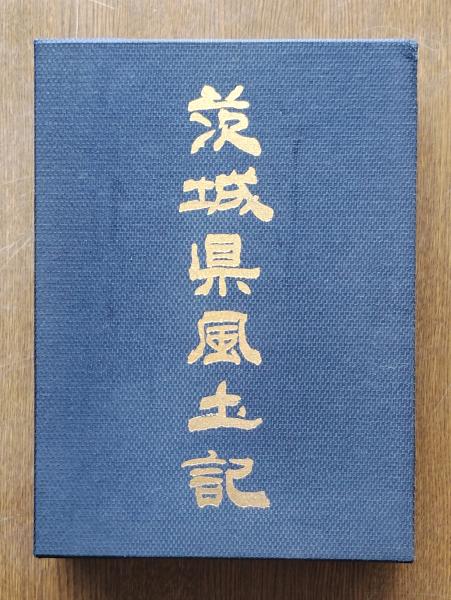 茨城県風土記